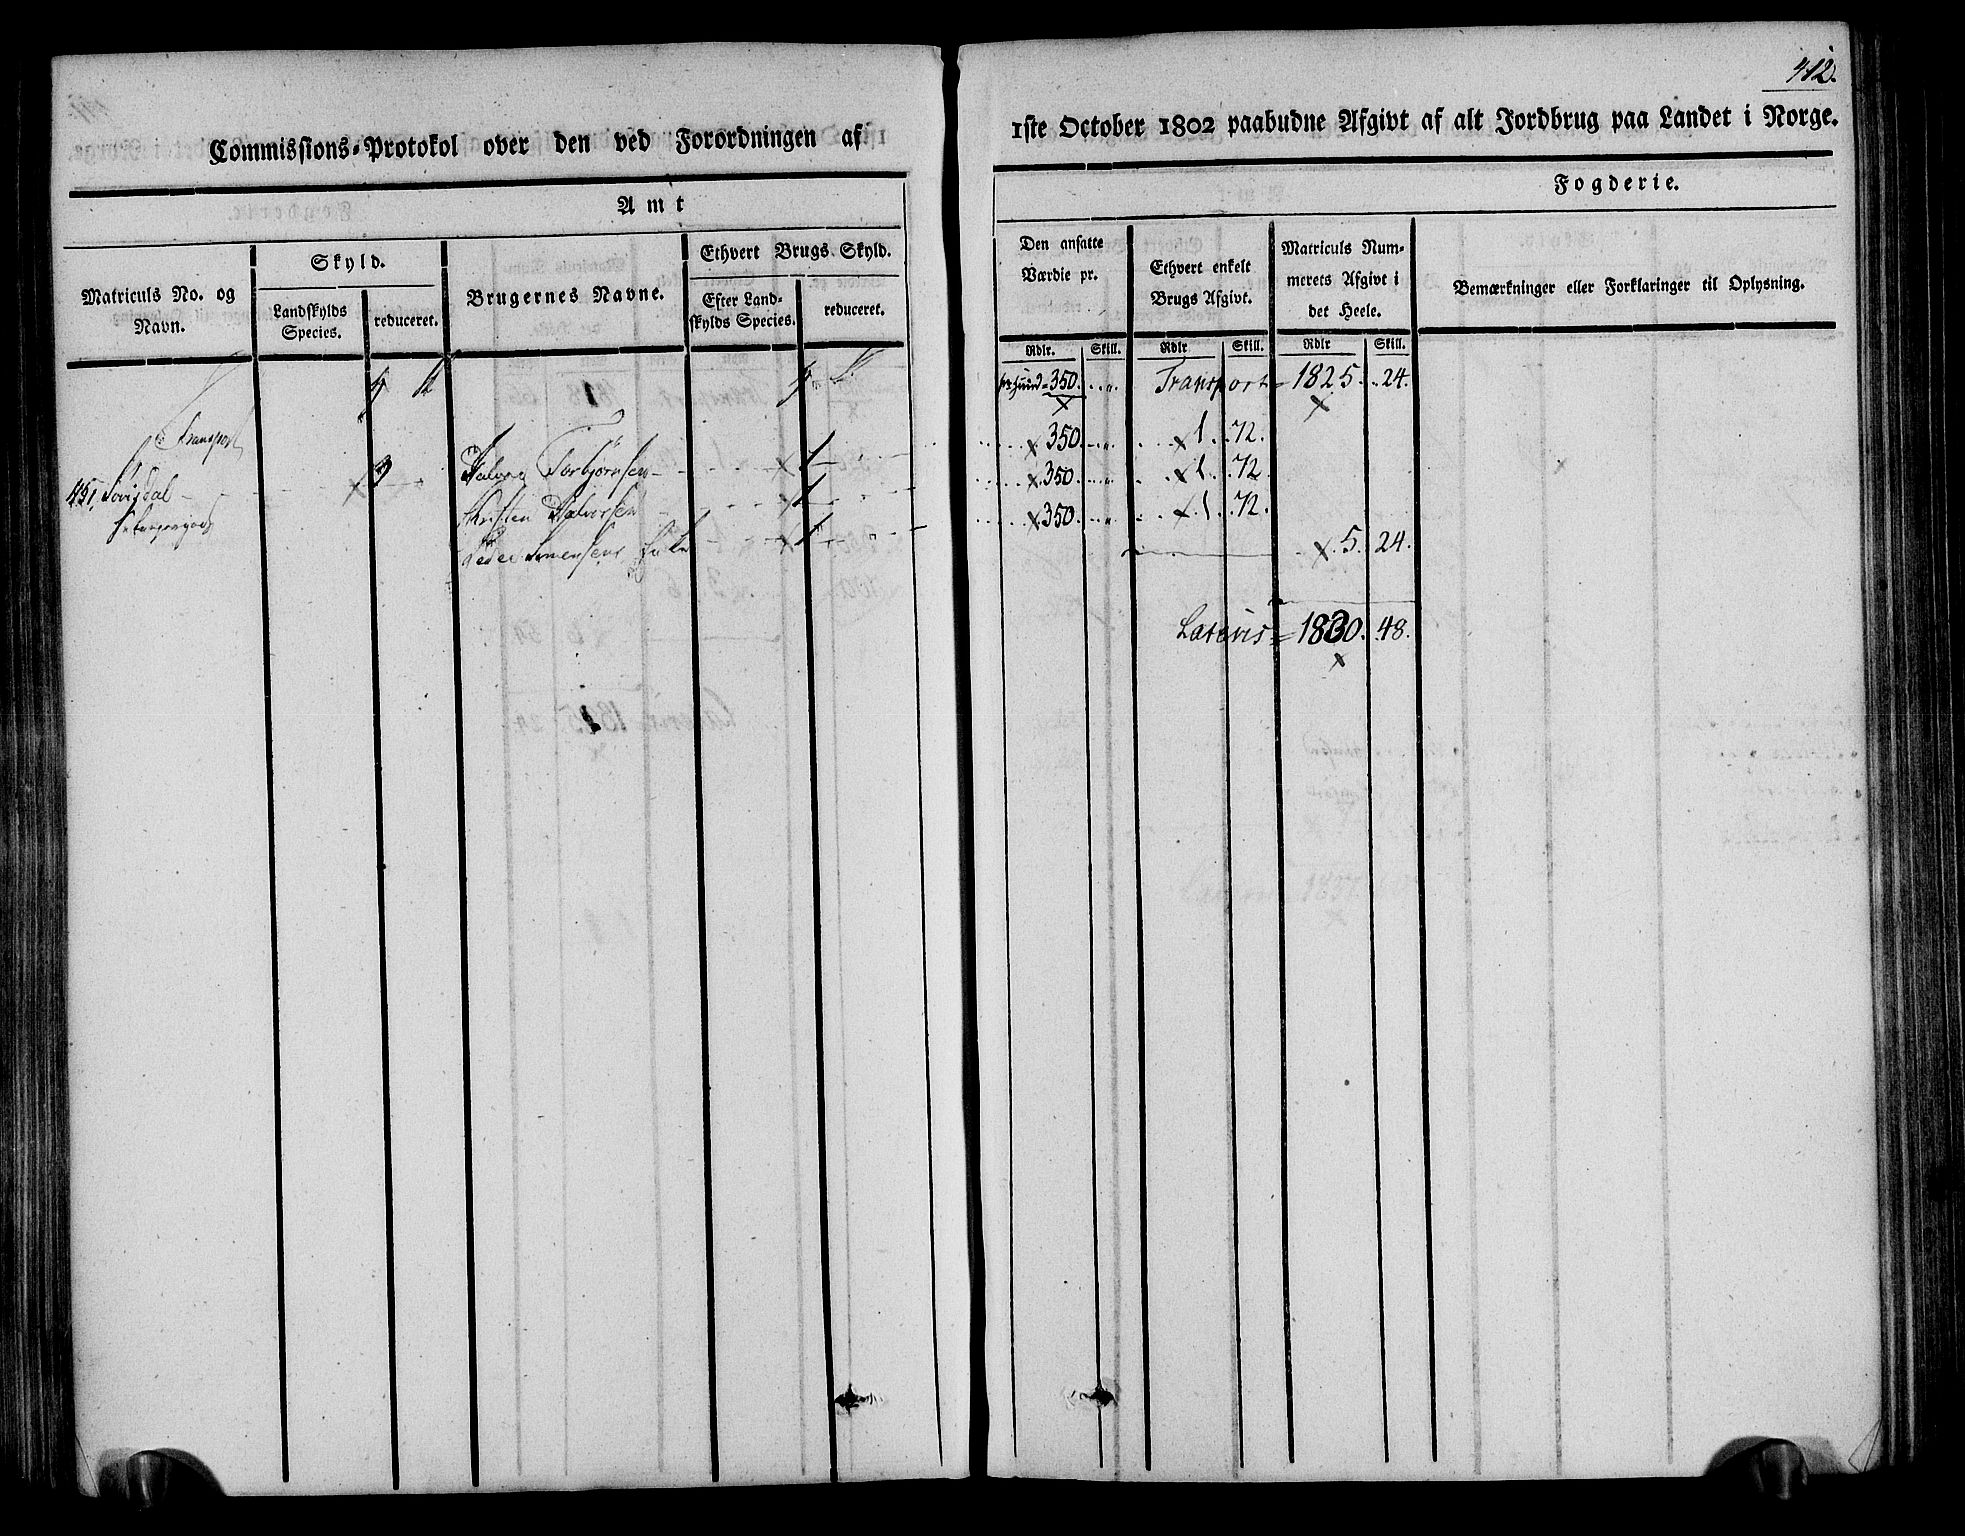 412.
Commissions-Protokol over den ved Forordningen af 1ste October 1802 paabudne Afgivt af alt Jordbrug paa Landet i Norge.
Amt
Fogderie.
Matriculs No. og Navn.
Skyld.
Landskylds Species.
reduceret.
Brugernes Navne.
Ethvert Brugs Skyld.
Efter Landskylds Species.
reduceret.
Den ansatte Værdie pr.
Ethvert enkelt Brugs Afgivt.
Matriculs Nummerets Afgivt i det Heele.
Bemærkninger eller Forklaringer til Oplysning.
Rdlr. Skill. Rdlr Skill. Rdlr Skill.
Transport
350. Transport 1825. 24.
451, 3 Torbjørnsen 1 350. 1. 72.
Christen Halvorsen 1 350. 1. 72.
1 350. 1. 72.
5. 24.
Lateris 1830. 48.